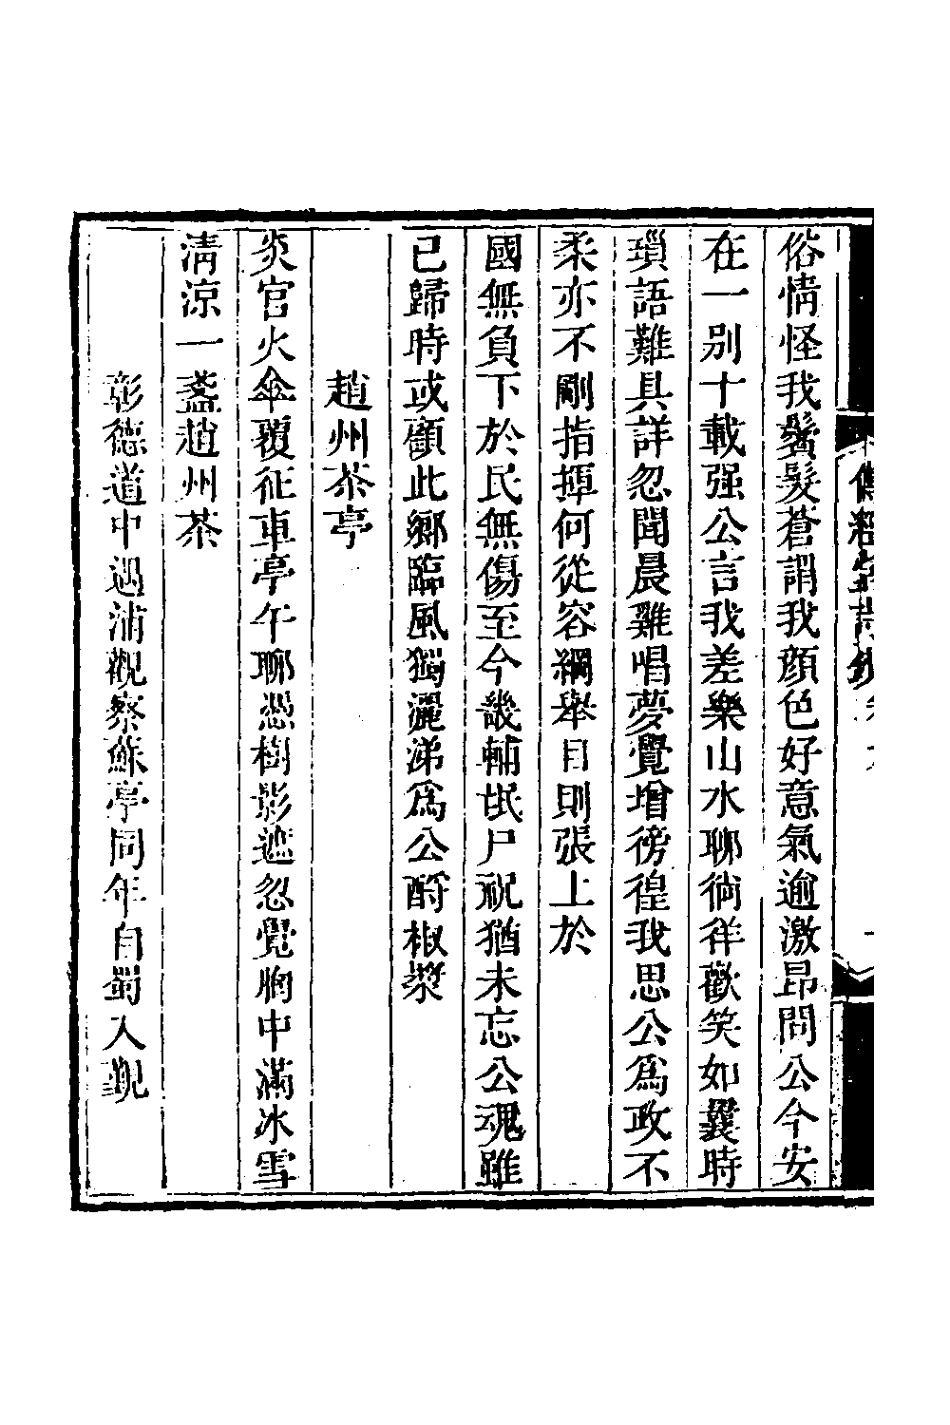 俗情怪我鬢髮蒼謂我顔色好意氣逾激昂問公今安
在一别十載强公言我差樂山水聊徜徉歡笑如曩時
瑣語難具詳忽聞晨雞唱夢覺增徬徨我思公爲政不
柔亦不剛指揮何從容綱舉目則張上於
國無負下於民無傷至今畿輔氓尸祝猶未忘公魂雖
已歸時或顧此鄉臨風獨灑涕爲公酹椒漿
趙州茶亭
炎官火傘覆征車亭午聊憑樹影遮忽覺胸中滿冰雪
淸涼一盞趙州茶
彰德道中遇浦觀察蘇亭同年自蜀入覲